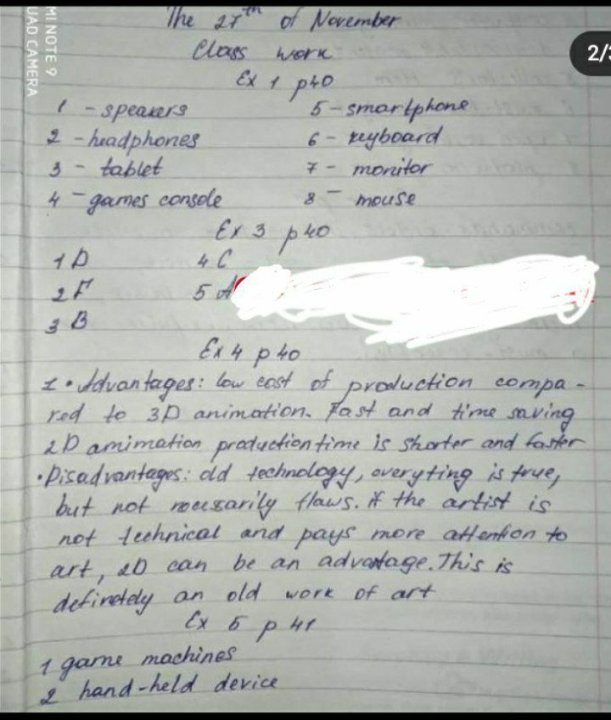 MI NOTE 9
UAD CAMERA
2/3
The 27th of November
Class work
Ex 1 p40
1 - speakers
2 - headphones
3 - tablet
4 - games console
5 - smartphone
6 - keyboard
7 - monitor
8 - mouse
Ex 3 p40
1 D
2 F
3 B
4 C
5 A
Ex 4 p 40
1 • Advantages: low cost of production compa-
red to 3D animation. Fast and time saving
2D amimation production time is shorter and faster
• Disadvantages: old technology, everyting is true,
but not necessarily flaws. if the artist is
not technical and pays more attention to
art, 2D can be an advantage. This is
definetely an old work of art
Ex 5 p 41
1 game machines
2 hand-held device